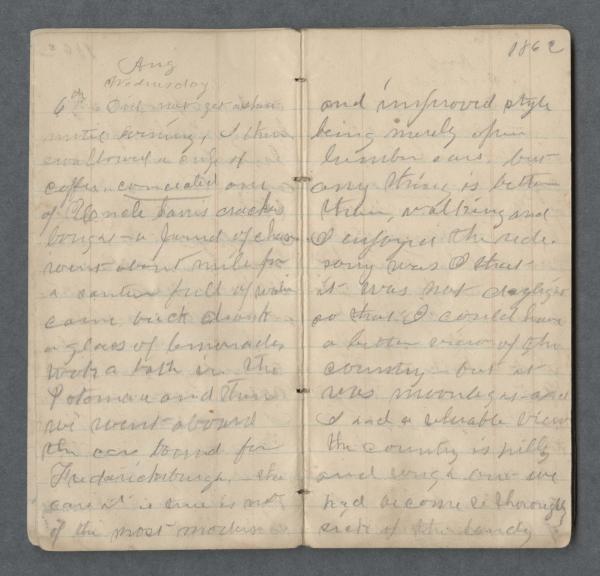 Aug
Wednesday
6th Did not get ashore
until evening, I then
swallowed a cup of
coffee, consecrated one
of Uncle Sam's crackers
bought a pound of cheese
went about mile for
a canteen full of water
came back drank
a glass of lemonade
took a bath in the
Potomac and then
we went aboard
the cars bound for
Fredericksburgh. the
cars is not
of the most modern
1862
and improved style
being merely open
lumber cars, but
any thing is better
than walking and
I enjoyed the ride.
sorry was I that
it was not daylight
so that I could have
a better view of the
country but it
was moonlight and
I had a tolerable view
the country is hilly
and rough and we
had become so thoroughly
sick of the sandy